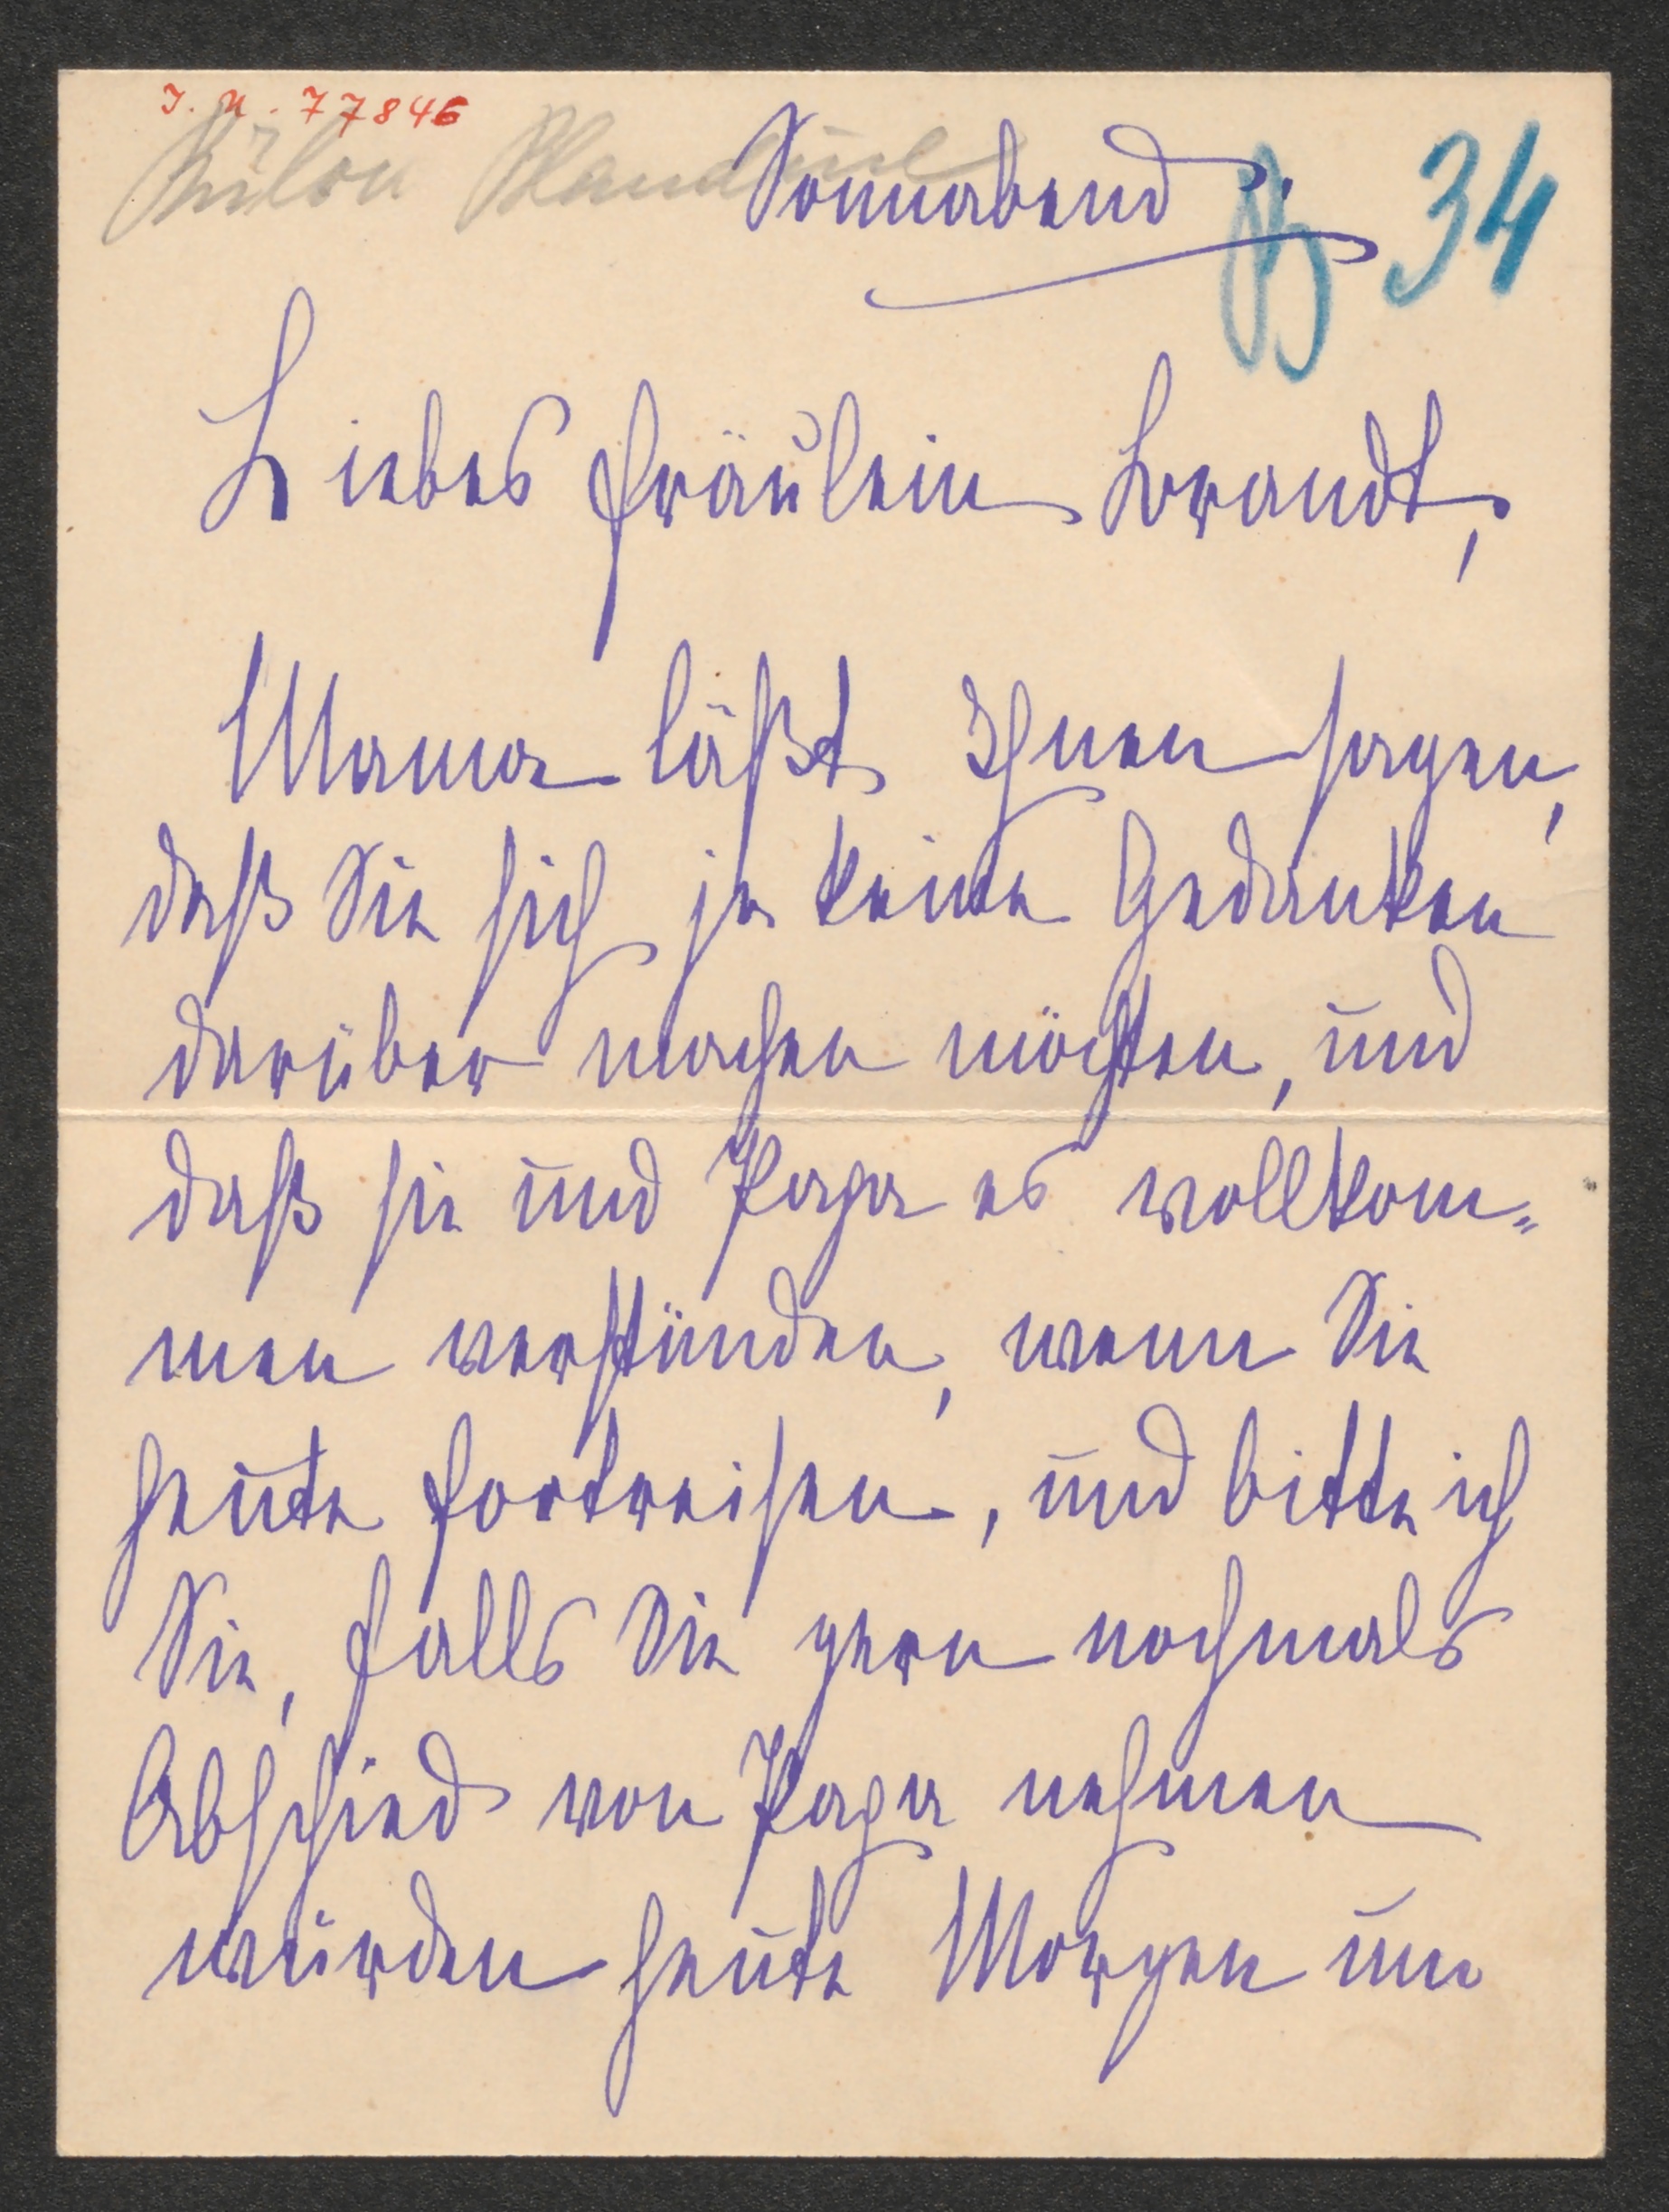 J. N. 77846
Bülow Blandine
Sonnabend.
34
Liebes Fräulein Brandt,
Mama läßt Ihnen sagen,
daß Sie sich ja keine Gedanken
darüber machen möchten, und
daß sie und Papa es vollkom-
men verständen, wenn Sie
heute fortreisen, und bitte ich
Sie, falls Sie gern nochmals
Abschied von Papa nehmen
würden heute Morgen um